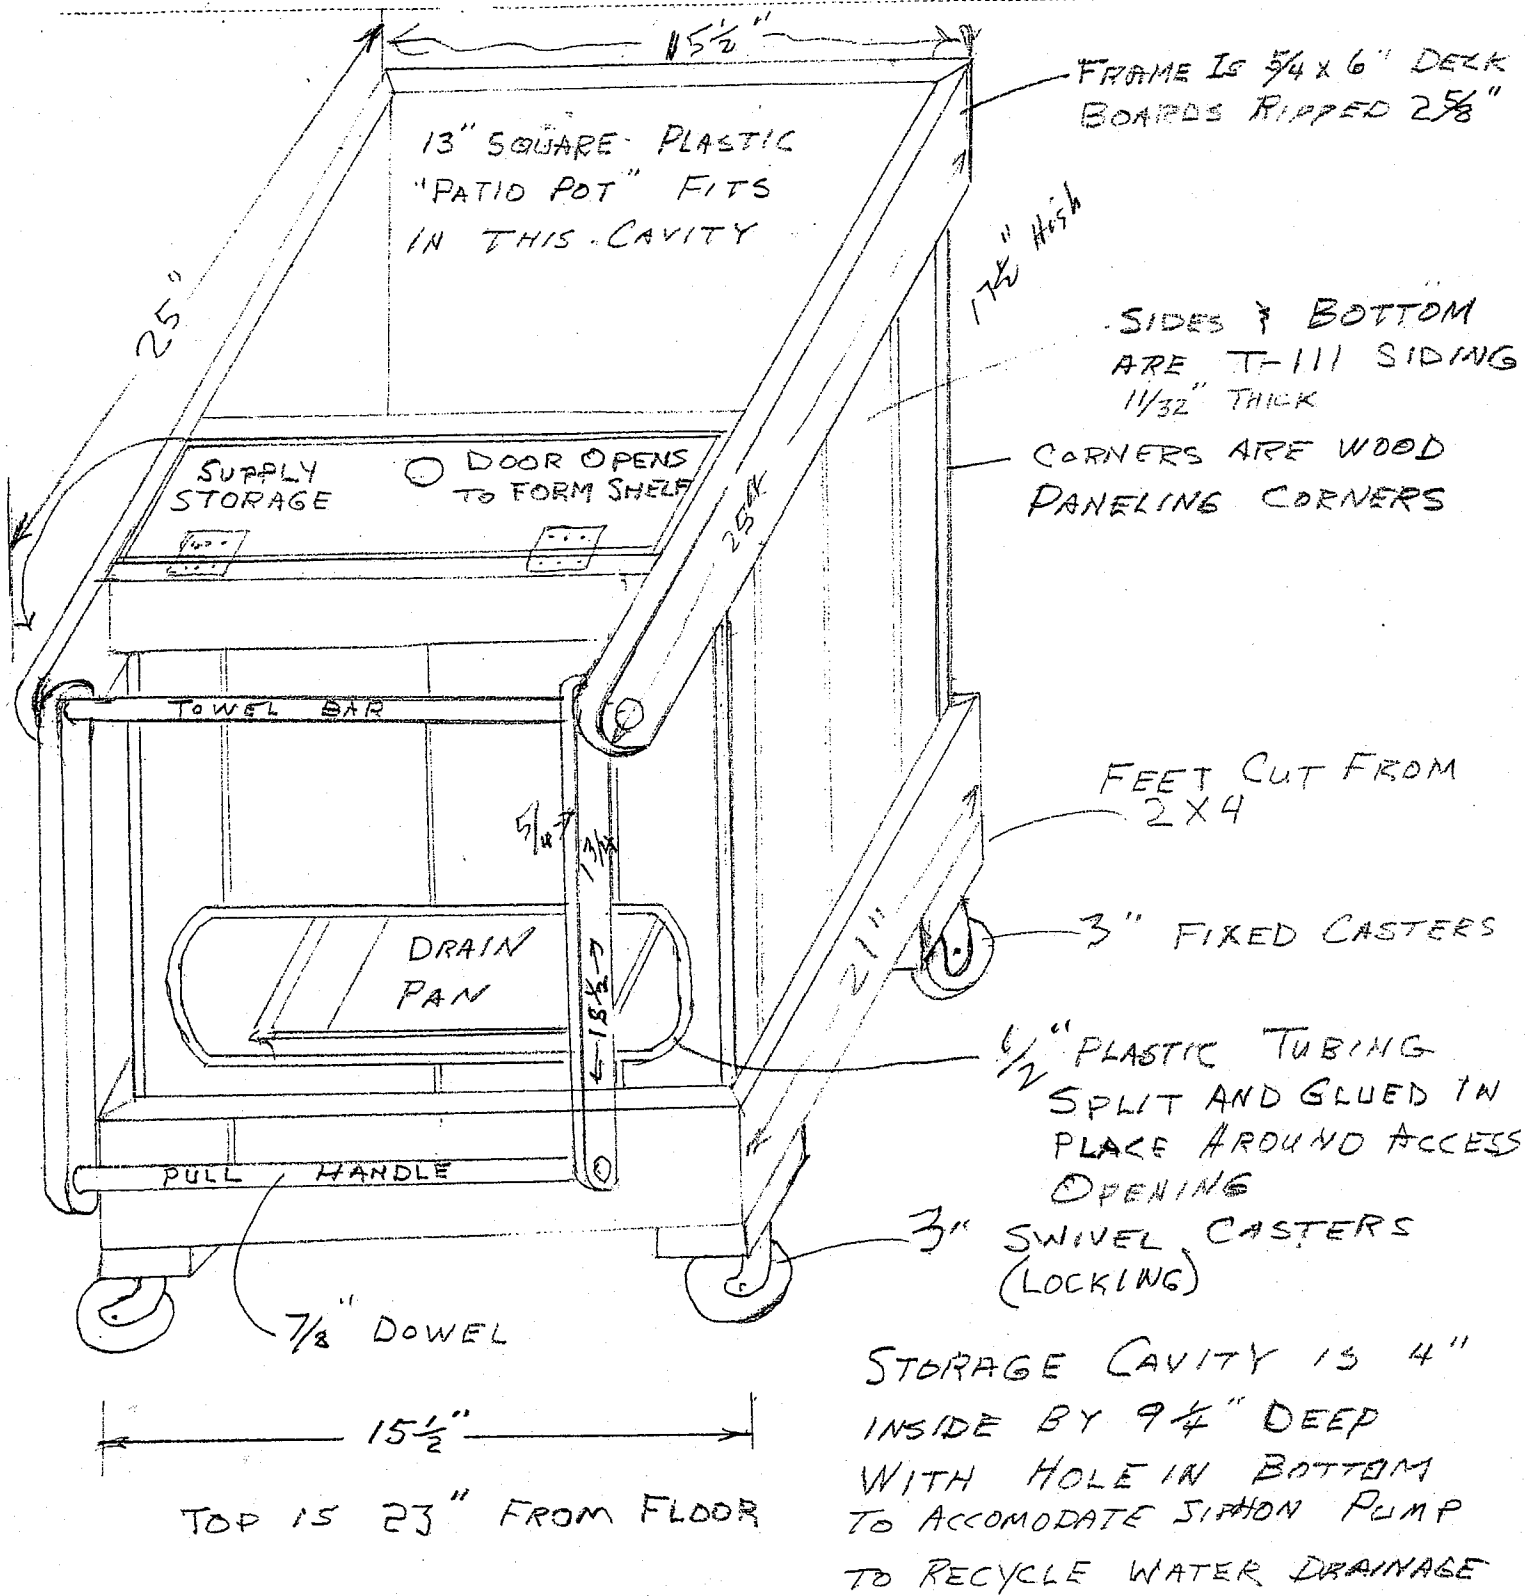 15½"
FRAME IS 5/4 X 6" DECK
BOARDS RIPPED 2⅝"
13" SQUARE PLASTIC
"PATIO POT" FITS
IN THIS CAVITY
25"
17½" High
SIDES & BOTTOM
ARE T-111 SIDING
11/32" THICK
CORNERS ARE WOOD
PANELING CORNERS
SUPPLY
STORAGE
DOOR OPENS
TO FORM SHELF
TOWEL BAR
FEET CUT FROM
2X4
21"
DRAIN
PAN
←18½→
3" FIXED CASTERS
1/2" PLASTIC TUBING
SPLIT AND GLUED IN
PLACE AROUND ACCESS
OPENING
PULL HANDLE
3" SWIVEL CASTERS
(LOCKING)
7/8" DOWEL
15½"
TOP IS 23" FROM FLOOR
STORAGE CAVITY IS 4"
INSIDE BY 9¼" DEEP
WITH HOLE IN BOTTOM
TO ACCOMODATE SIPHON PUMP
TO RECYCLE WATER DRAINAGE